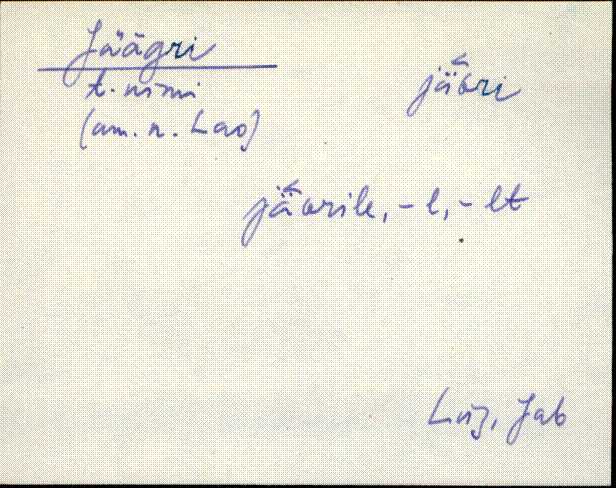 Jäägri
t. nimi
(am. n. Lao)
jä̆ʙri
jä̆ʙrile, -l, -lt
Lüg, Jab